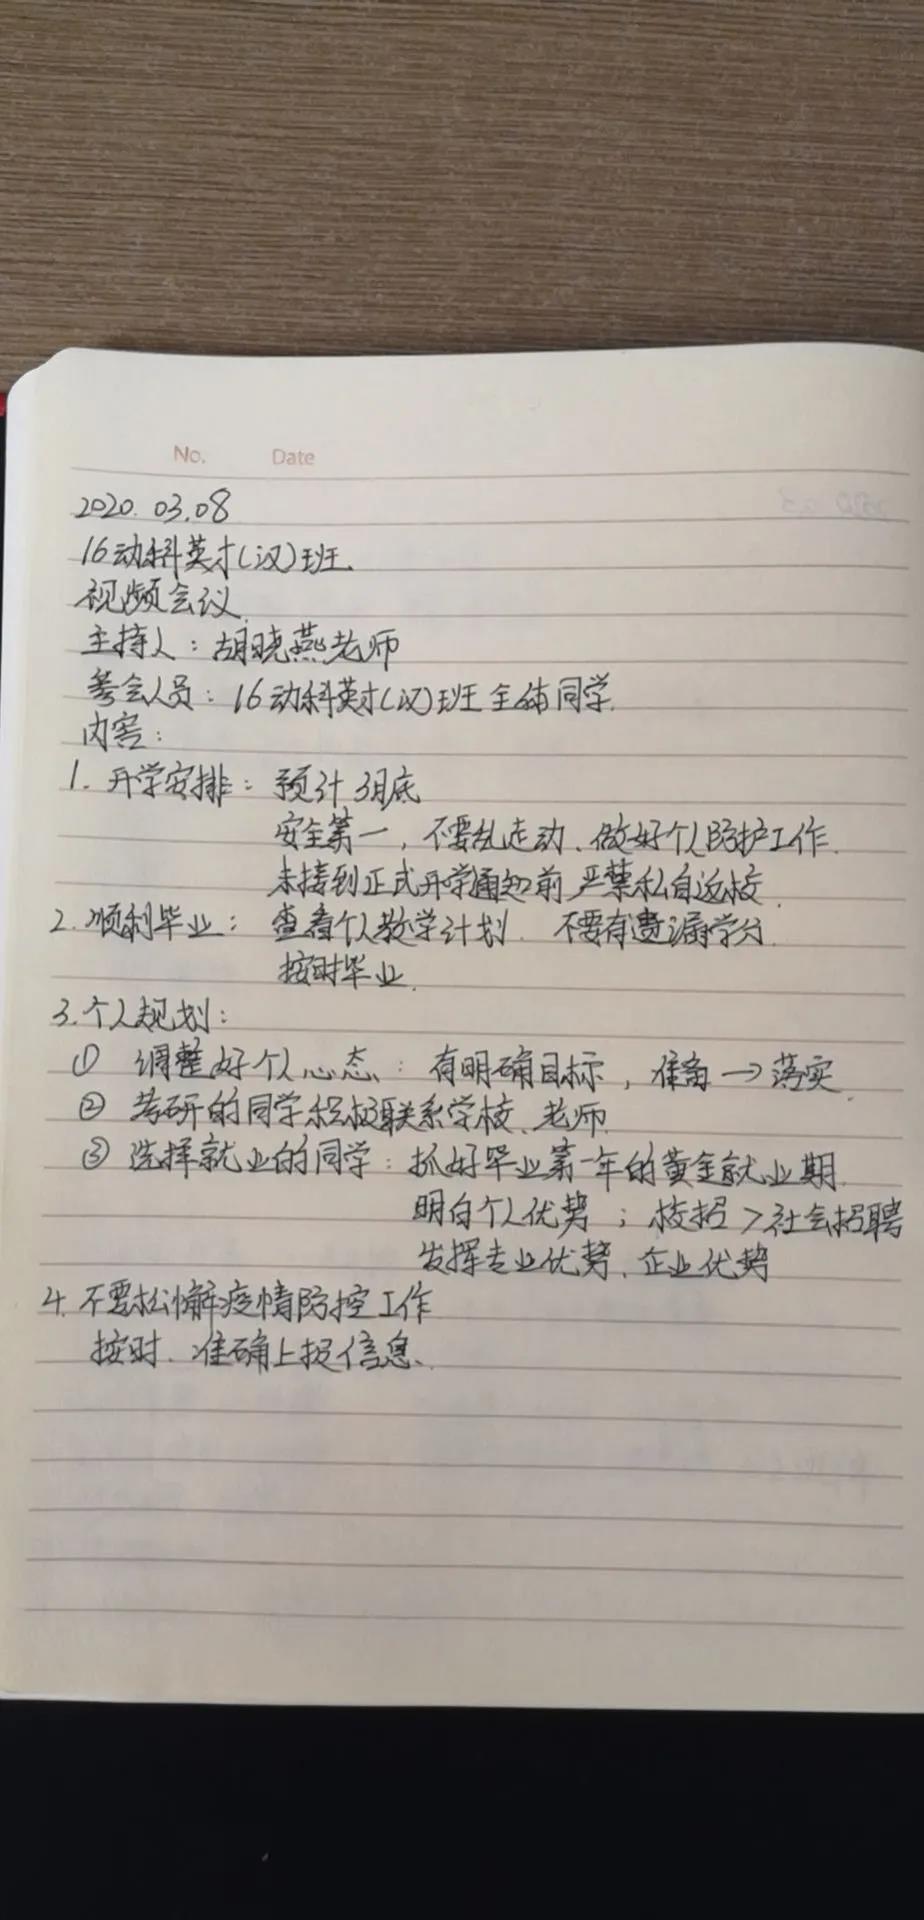 No. Date
2020.03.08
16动科英才(汉)班.
视频会议.
主持人：胡晓燕老师
参会人员：16动科英才(汉)班全体同学.
内容：
1. 开学安排：预计3月底
安全第一，不要乱走动、做好个人防护工作.
未接到正式开学通知前严禁私自返校.
2. 顺利毕业：查看个人教学计划. 不要有遗漏学分.
按时毕业.
3. 个人规划：
① 调整好个人心态：有明确目标，准备→落实.
② 考研的同学积极联系学校、老师.
③ 选择就业的同学：抓好毕业第一年的黄金就业期.
明白个人优势；校招>社会招聘
发挥专业优势、企业优势
4. 不要松懈疫情防控工作
按时、准确上报信息.